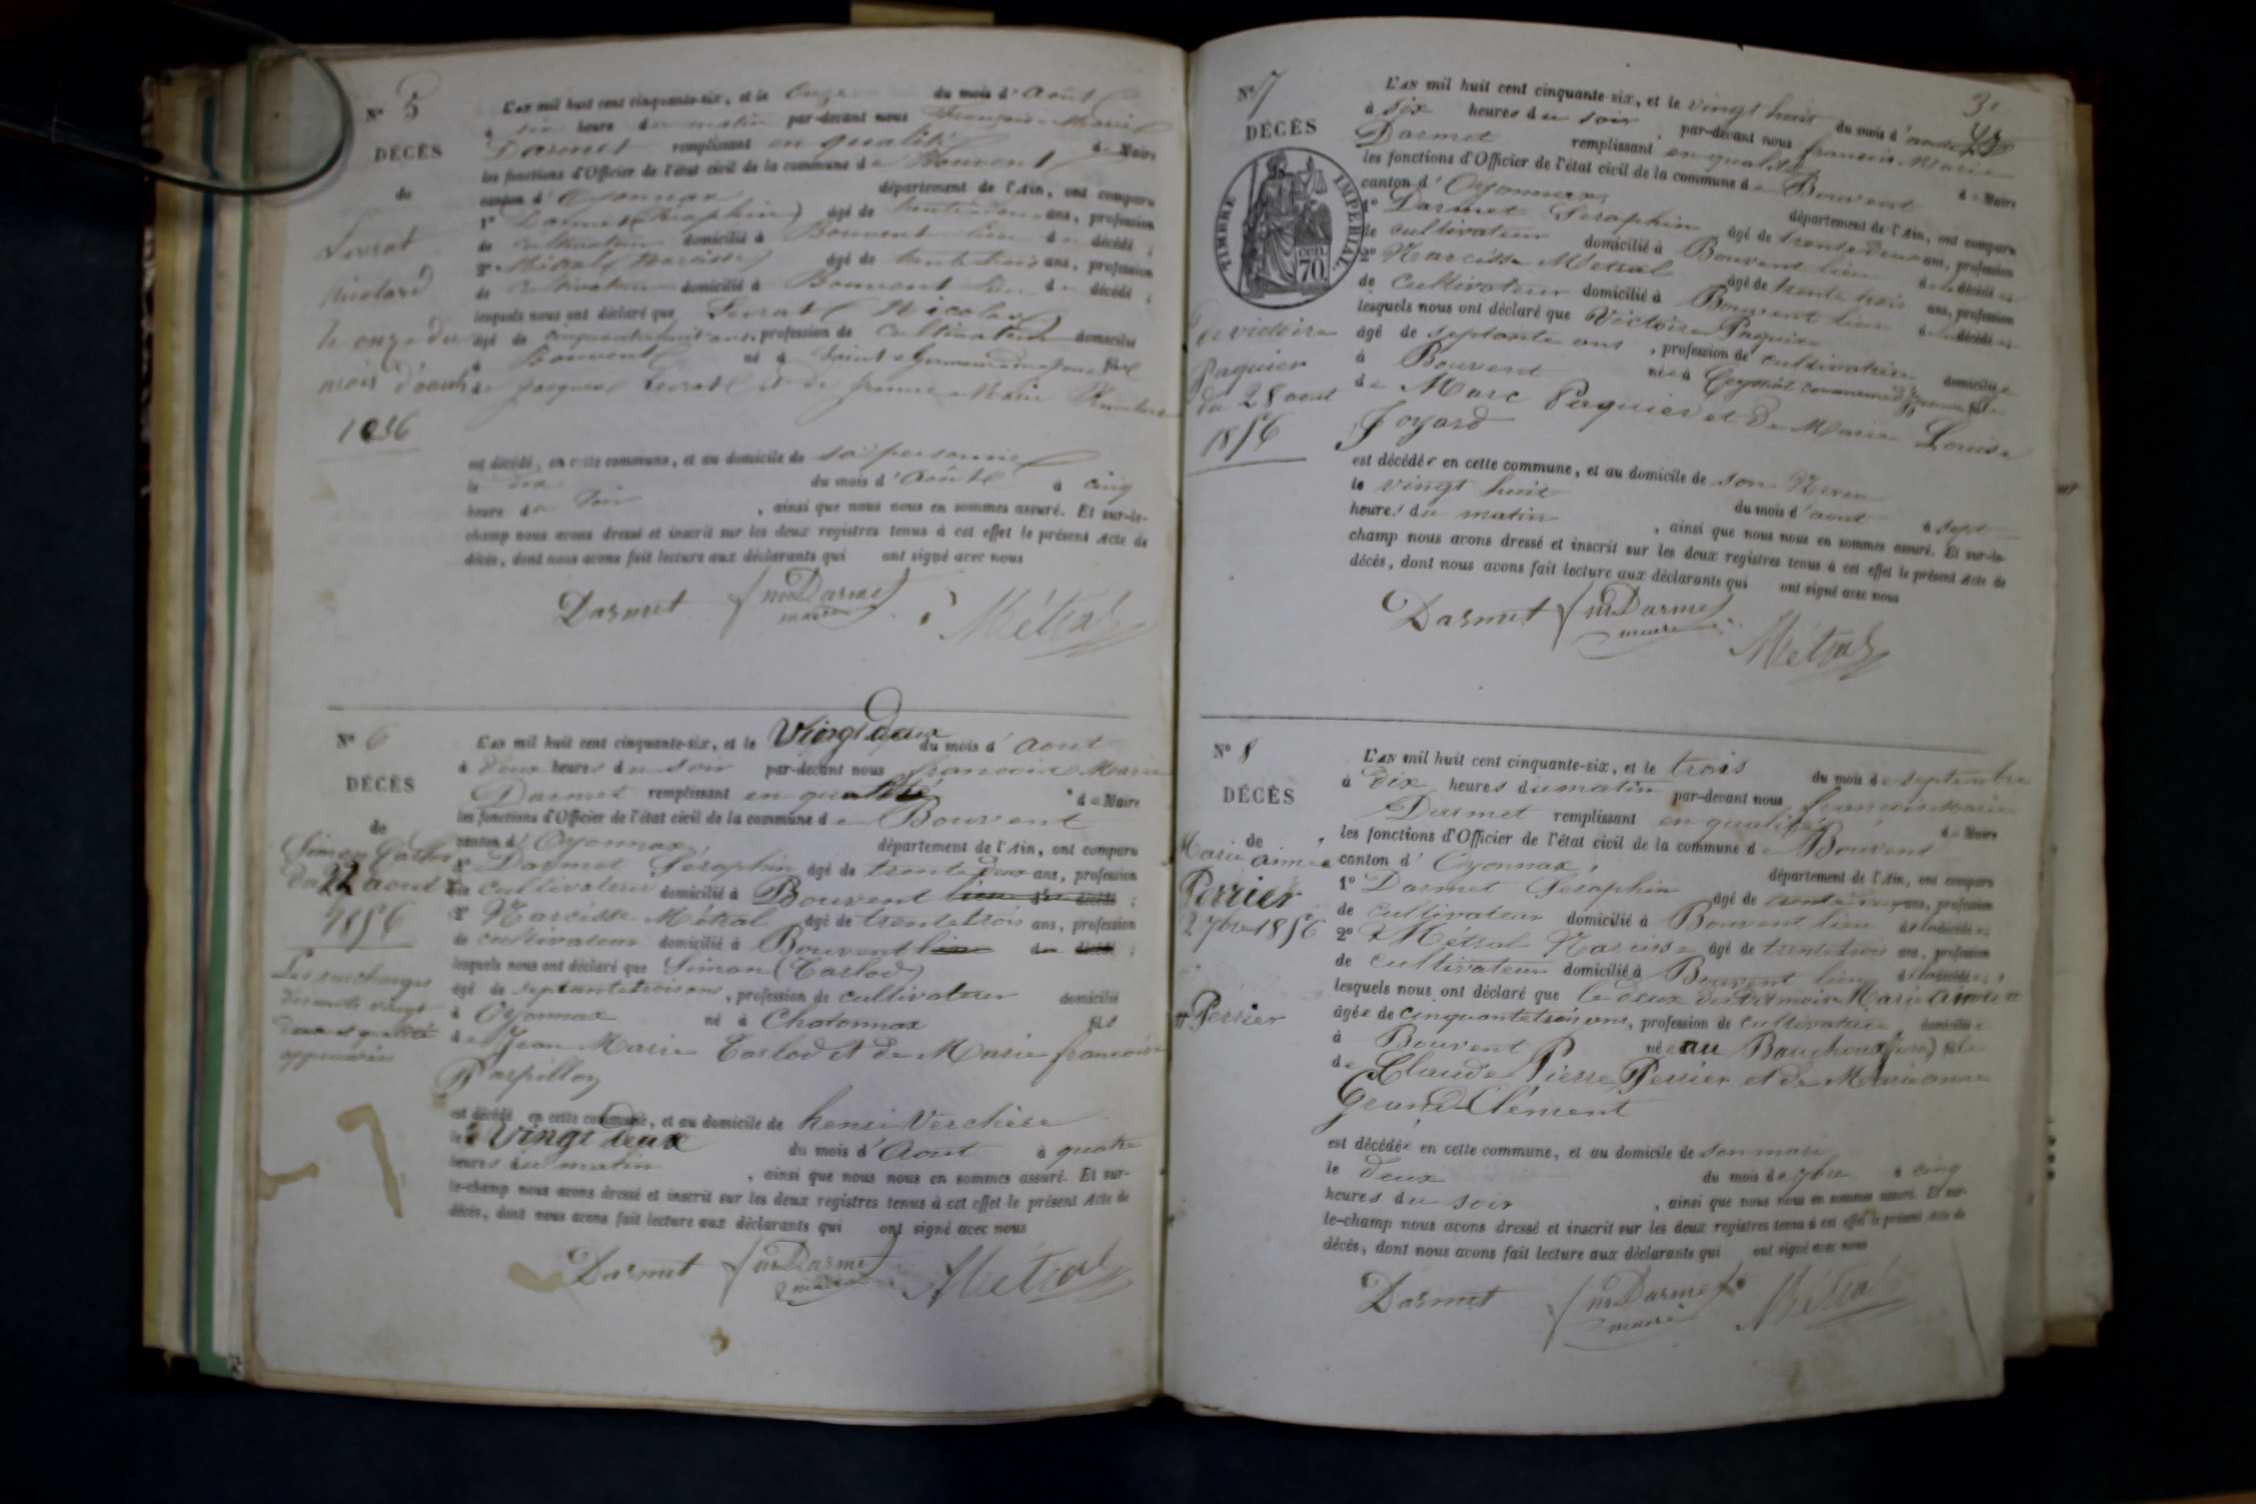 N° 5
DÉCÈS
de
Levrat
Nicolas
le onze du
mois d'août
1856
L'an mil huit cent cinquante-six, et le onze du mois d'août
à six heure du matin par-devant nous François Marie
Darmet remplissant en qualité de Maire
les fonctions d'Officier de l'état civil de la commune de Bouvent
canton d'Oyonnax département de l'Ain, ont comparu
1° Darmet (Séraphin) âgé de trente deux ans, profession
de cultivateur domicilié à Bouvent lieu du décédé ;
2° Métral (Narcisse) âgé de trente trois ans, profession
de cultivateur domicilié à Bouvent lieu du décédé ;
lesquels nous ont déclaré que Levrat Nicolas
âgé de cinquante huit ans, profession de cultivateur domicilié
à Bouvent né à Saint Germain de Joux fils
de Jacques Levrat et de Jeanne Marie
est décédé, en cette commune, et au domicile de sa personne
le dix du mois d'août à cinq
heure du soir, ainsi que nous nous en sommes assuré. Et sur-le-
champ nous avons dressé et inscrit sur les deux registres tenus à cet effet le présent Acte de
décès, dont nous avons fait lecture aux déclarants qui ont signé avec nous
Darmet fm Darmet Métral
maire
N° 6
DÉCÈS
de
Simon Carlod
du 22 aout
1856
Les surcharges
des mots vingt
deux et qualité
approuvées
L'an mil huit cent cinquante-six, et le vingt deux du mois d'aout
à deux heures du soir par-devant nous francois Marie
Darmet remplissant en qualité de Maire
les fonctions d'Officier de l'état civil de la commune de Bouvent
canton d'Oyonnax département de l'Ain, ont comparu
1° Darmet Séraphin âgé de trente deux ans, profession
de cultivateur domicilié à Bouvent lieu du décédé ;
2° Narcisse Métral âgé de trente trois ans, profession
de cultivateur domicilié à Bouvent lieu du décédé ;
lesquels nous ont déclaré que Simon (Carlod)
âgé de septante trois ans, profession de cultivateur domicilié
à Oyonnax né à Chatonnax fils
de Jean Marie Carlod et de Marie francoise
Parpillon
est décédé en cette commune, et au domicile de henri Verchère
le vingt deux du mois d'Aout à quatre
heures du matin, ainsi que nous nous en sommes assuré. Et sur-
le-champ nous avons dressé et inscrit sur les deux registres tenus à cet effet le présent Acte de
décès, dont nous avons fait lecture aux déclarants qui ont signé avec nous
Darmet fm Darmet Métral
maire
N° 7
DÉCÈS
TIMBRE IMPÉRIAL
CEN. 70
de victoire
Paquier
du 28 aout
1856
L'an mil huit cent cinquante-six, et le vingt huit du mois d'aout
à six heures du soir, par-devant nous francois Marie
Darmet remplissant en qualité de Maire
les fonctions d'Officier de l'état civil de la commune de Bouvent
canton d'Oyonnax département de l'Ain, ont comparu
1° Darmet Seraphin âgé de trente deux ans, profession
de cultivateur domicilié à Bouvent lieu du décédé
2° Narcisse Métral âgé de trente trois ans, profession
de cultivateur domicilié à Bouvent lieu du décédé
lesquels nous ont déclaré que Victoire Paquier
âgé de septante ans, profession de cultivatrice domiciliée
à Bouvent née à fille
de Marc Paquier et de Marie Louise
Joyard
est décédée en cette commune, et au domicile de son Neveu
le vingt huit du mois d'aout à sept
heures du matin, ainsi que nous nous en sommes assuré. Et sur-le-
champ nous avons dressé et inscrit sur les deux registres tenus à cet effet le présent Acte de
décès, dont nous avons fait lecture aux déclarants qui ont signé avec nous
Darmet fm Darmet Métral
maire
N° 8
DÉCÈS
de
Marie aimée
Perrier
2 7bre 1856
Perrier
L'an mil huit cent cinquante-six, et le trois du mois de septembre
à dix heures du matin par-devant nous francois Marie
Darmet remplissant en qualité de Maire
les fonctions d'Officier de l'état civil de la commune de Bouvent
canton d'Oyonnax, département de l'Ain, ont comparu
1° Darmet Seraphin âgé de ans, profession
de cultivateur domicilié à Bouvent lieu de la décédée
2° Métral Narcisse âgé de trente trois ans, profession
de cultivateur domicilié à Bouvent lieu de la décédée
lesquels nous ont déclaré que le deux du Marie aimée
âgée de cinquante trois ans, profession de cultivatrice, domiciliée
à Bouvent née au Bouchoux (jura) fille
de Claude Pierre Perrier et de Marieanne
Grand-Clément
est décédée en cette commune, et au domicile de son mari
le deux du mois de 7bre à cinq
heures du soir, ainsi que nous nous en sommes assuré. Et sur-
le-champ nous avons dressé et inscrit sur les deux registres tenus à cet effet le présent Acte de
décès, dont nous avons fait lecture aux déclarants qui ont signé avec nous
Darmet fm Darmet Métral
maire